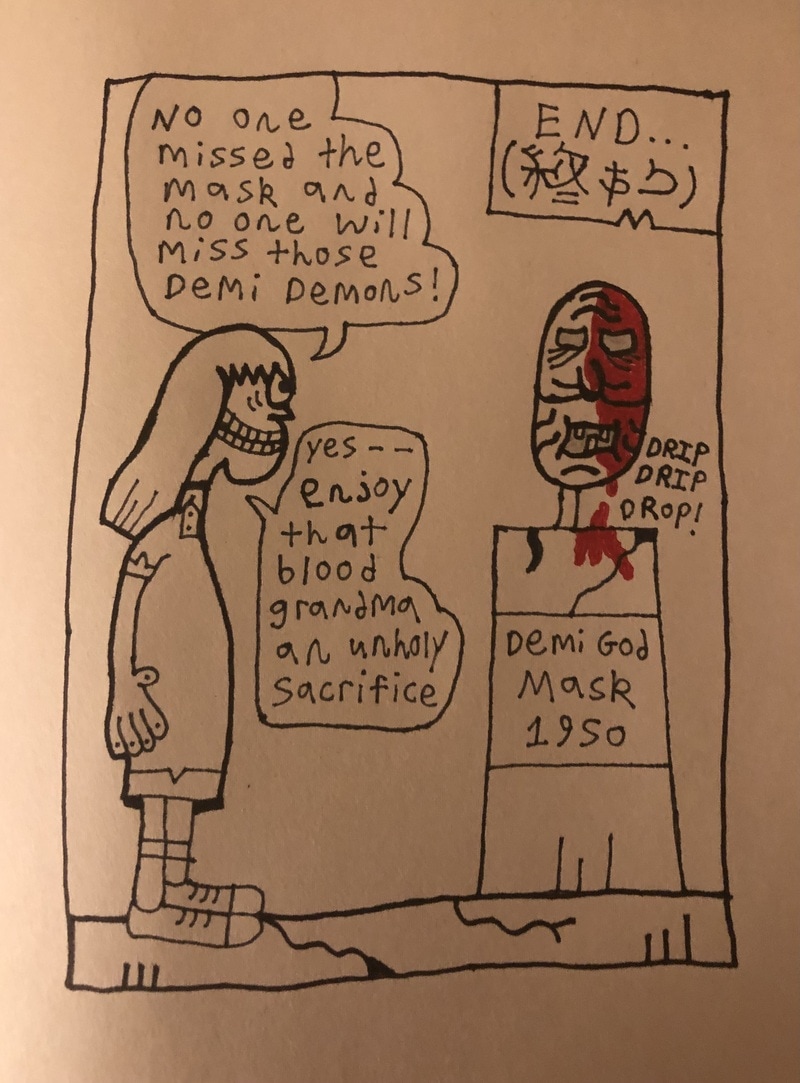 No one
missed the
mask and
no one will
miss those
Demi Demons!
END...
(終わり)
yes--
enjoy
that
blood
grandma
an unholy
sacrifice
DRIP
DRIP
DROP!
Demi God
Mask
1950